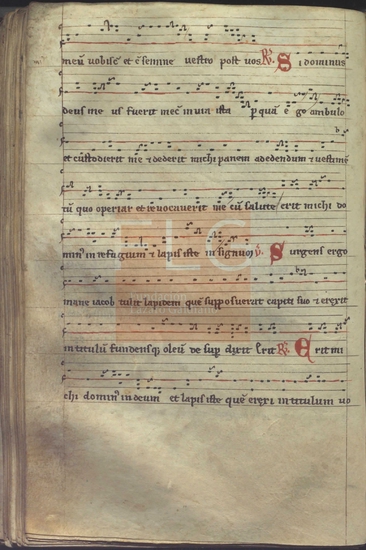 meū uobisc̄ et c̄ semine uestro post uos R. Si dominus
deus meus fuerit mec̄ in uia ista p quā ego ambulo
et custodierit me ⁊ dederit michi panem ad edendum ⁊ uestimē
tū quo operiar et reuocauerit me cū salute erit michi do
min' in refugium ⁊ lapis iste in signum V. Surgens ergo
mane iacob tulit lapidem quē supposuerat capiti suo ⁊ erexit
in titulū fundensq; oleū de sup dixit Erit R. Erit mi
chi domin' in deum et lapis iste quē erexi in titulum uo